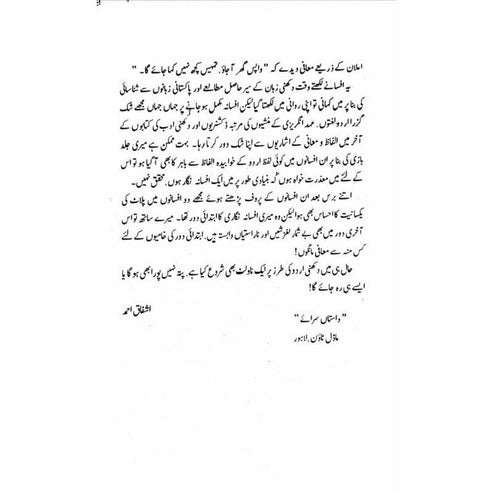 اعلان کے ذریعے معافی دیدے کہ "واپس گھر آجاؤ۔ تمہیں کچھ نہیں کہا جائے گا۔"
یہ افسانے لکھتے وقت دکھنی زبان کے سیر حاصل مطالعے اور پاکستانی زبانوں سے شناسائی
کی بنا پر میں کہانی تو اپنی روانی میں لکھتا گیا لیکن افسانہ مکمل ہو جانے پر جہاں جہاں مجھے شک
گزرا اردو لغتوں، عہد انگریزی کے منشیوں کی مرتبہ ڈکشنریوں اور دکھنی ادب کی کتابوں کے
آخر میں الفاظ و معانی کے اشاریوں سے اپنا شک دور کرتا رہا۔ بہت ممکن ہے میری جلد
بازی کی بنا پر ان افسانوں میں کوئی لفظ اردو کے خوابیدہ الفاظ سے باہر کا بھی آ گیا ہو تو اس
کے لئے میں معذرت خواہ ہوں کہ بنیادی طور پر میں ایک افسانہ نگار ہوں، محقق نہیں۔
اتنے برس بعد ان افسانوں کے پروف پڑھتے ہوئے مجھے دو افسانوں میں پلاٹ کی
یکسانیت کا احساس بھی ہوا لیکن وہ میری افسانہ نگاری کا ابتدائی دور تھا۔ میرے ساتھ تو اس
آخری دور میں بھی بے شمار لغزشیں اور ناراستیاں وابستہ ہیں، ابتدائی دور کی خامیوں کے لئے
کس منہ سے معافی مانگوں!
حال ہی میں دکھنی اردو کی طرز پر ایک ناولٹ بھی شروع کیا ہے۔ پتہ نہیں پورا بھی ہو گا یا
ایسے ہی رہ جائے گا!
اشفاق احمد
"داستاں سرائے"
ماڈل ٹاؤن۔ لاہور